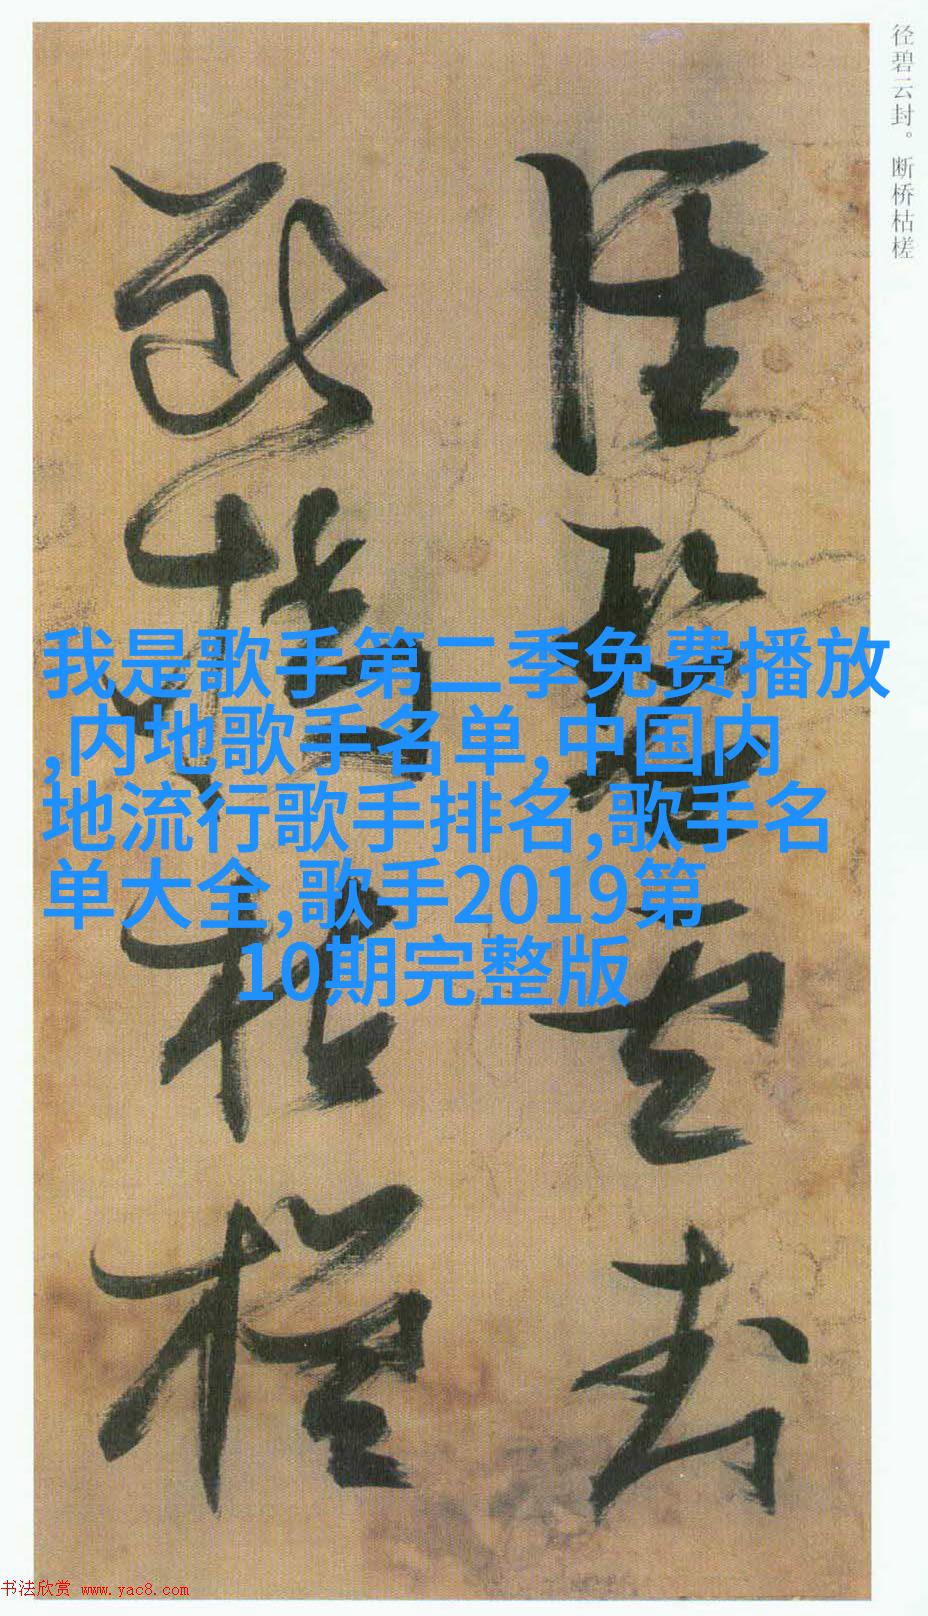 径碧云封。断桥枯槎
径碧云封
断桥枯槎
我是歌手第二季免费播放
,内地歌手名单,中国内
地流行歌手排名,歌手名
单大全,歌手2019第
10期完整版
书法欣赏 www.yac8.com